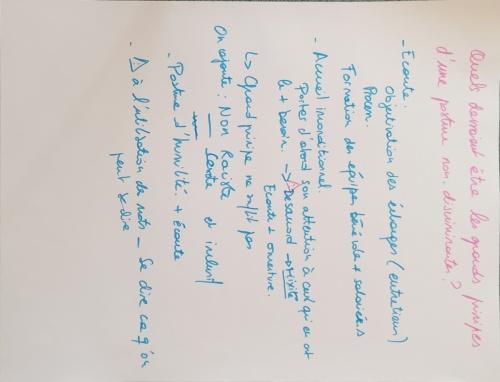 Quels devraient être les grands principes
d'une posture non-discriminantes ?
- Ecoute :
Objectivation des échanges (entretiens)
Process.
Formation des équipes bénévoles + salarié.e.s
- Accueil inconditionnel
Portes d'abord son attention à ceux qui en ont
le + besoin. → Δ Désaccord → Mixité
Ecoute + ouverture.
↳ Grand principe ne suffit pas
On rajoute : Non Raciste
Sexiste et inclusif
- Posture d'humilité + écoute
- Δ à l'utilisation de mots - Se dire ce q'on
peut se dire